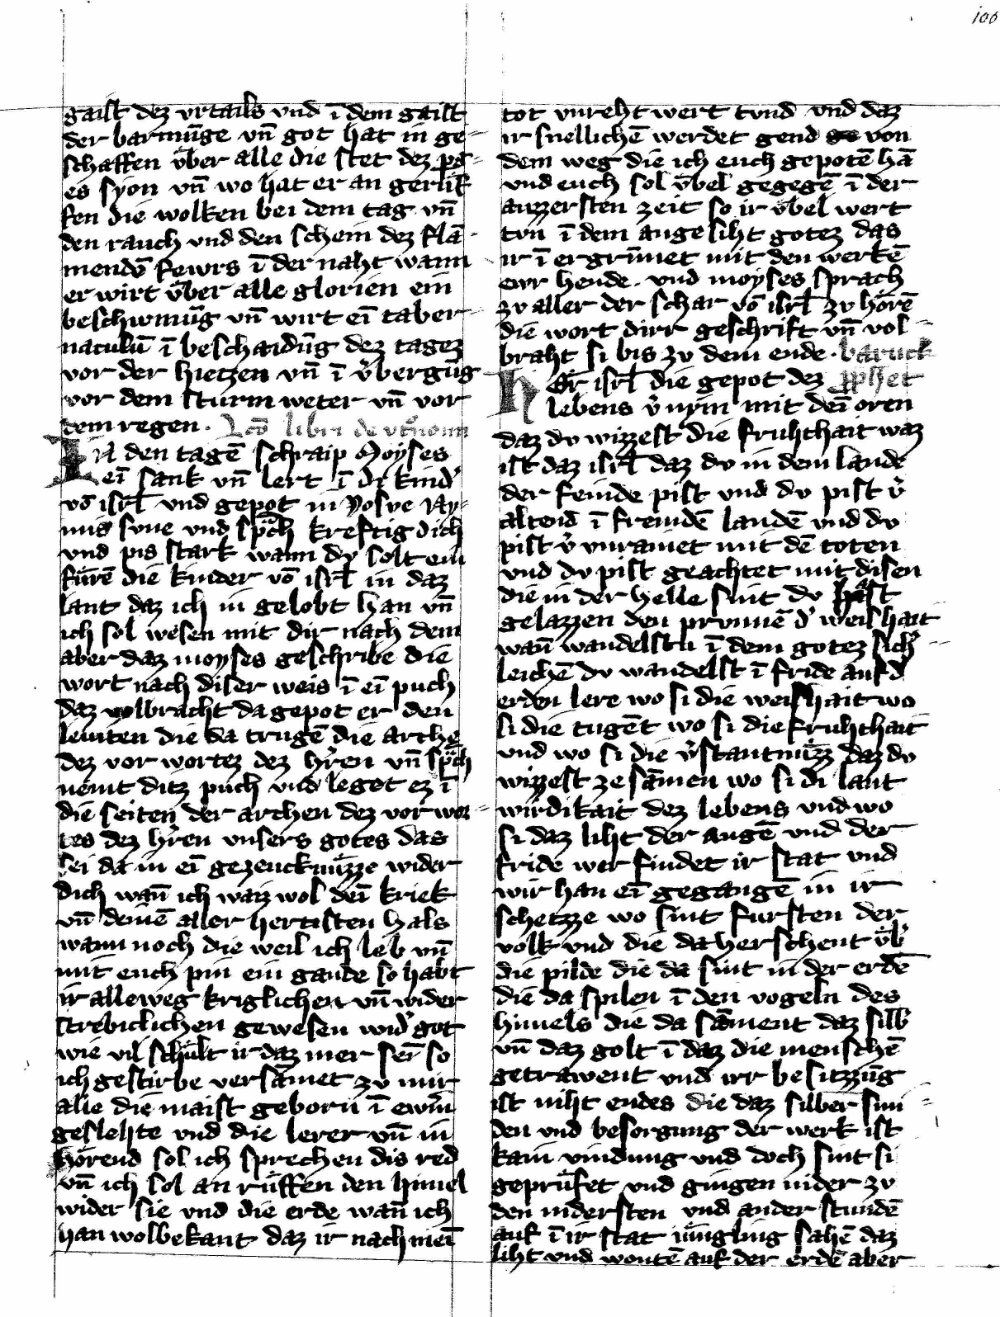 100
gaist dez vrtails vnd ī dem gaist
der barmūge vn̄ got hat in ge
schaffen v̈ber alle die stet dez pg
es syon vn̄ wo hat er an gerüf
fen die wolken bei dem tag vn̄
den rauch vnd den schein dez flā
mendē fewrs ī der naht wann
er wirt v̈ber alle glorien ein
beschirmūg vn̄ wirt eī taber
naculū ī beschaidūg dez tagez
vor der hietzen vn̄ ī v̈bergūg
vor dem sturm weter vn̄ vor
dem regen . Lcō libri deut̄nomī
IN den tagē schraip Moyses
eī sank vn̄ lert ī di kind'
vō isrl vnd gepot in Yosve Ny
mis svne vnd sp̄ch kreftig dich
vnd pis stark wann dv solt ein
fürē die kinder vō isrl in daz
lant daz ich in gelobt han vn̄
ich sol wesen mit dir nach dem
aber daz moyses geschribē die
wort nach diser weis ī eī puch
daz volbracht da gepot er den
leuiten die da trugē die arche
dez vor wortez dez h'ren vn̄ sp̄ch
nemt ditz puch vnd leget ez ī
die seiten der archen dez vor wor
tes dez h'ren vnsers gotes das
sei da in eī gezeucknüzze wider
dich wan̄ ich waiz wol deī kriek
vn̄ deinē aller hertisten hals
wann noch die weil ich leb vn̄
mit euch pin ein gande so habt
ir alleweg kriglichen vn̄ wider
strebiclichen gewesen wid' got
wie vil schült ir daz mer seī so
ich gestirbe versāmet zv mir
alle die maist geborn ī ewrm
geslehte vnd die lerer vn̄ in
hörend sol ich sprechen dis red
vn̄ ich sol an rüffen den himel
wider sie vnd die erde wan̄ ich
han wol bekant daz ir nach meī
tot vnreht wert tvnd vnd daz
ir snellichē werdet gend von
dem weg die ich euch gepotē hā
vnd euch sol v̈bel gegegē ī der
auzzersten zeit so ir v̈bel wert
tvn ī dem angesiht gotez das
ir ī ergrimet mit den werkē
ewr hende . vnd moyses sprach
zv aller der schar vō isrl zv hörē
die wort dirr geschrift vn̄ vol
braht si bis zv dem ende . baruck
Hör isrl die gepot dez p̄phet
lebens v' nym mit den oren
daz dv wizzest die fruhthait waz
ist daz isrl daz dv in dem lande
der feinde pist vnd dv pist v'
altend ī fremdē landē vnd dv
pist v' vnrainet mit dē toten
vnd dv pist geachtet mit disen
die in der helle sint dv hast
gelazzen den prvnnē d' weishait
wan̄ wandelstu ī dem gotez sich'
leichē dv wandelst ī fride auf d'
erden lere wo si die weishait wo
si die tugēt wo si die fruhthait
vnd wo si die v'stantnüzz daz dv
wizzest ze sāmen wo si di lant
wirdikait dez lebens vnd wo
si daz liht der augē vnd der
fride wer findet ir stat vnd
wir han eī gegangē in ir
schetzze wo sint fursten der
volk vnd die da herschent v̈b'
die pilde die da sint in der erdē
die da spilen ī den vogeln des
himels die da sāment daz silb'
vn̄ daz golt ī daz die menschē
getrawent vnd irr besitzzūg
ist niht endes die daz silber smi
den vnd besorgung der werk ist
kain vindung vnd doch sint si
geprüfet vnd gingen nider zv
den nidersten vnd ander stundē
auf ī ir stat iüngling sahē daz
liht vnd wontē auf der erdē aber